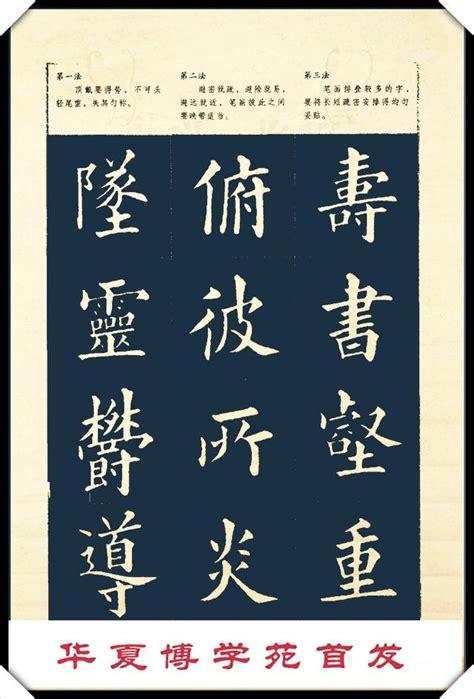 第一法
顶戴要得势，不可头
轻尾重，失其匀称。
墜
靈
鬱
導
第二法
避密就疏，避险就易，
避远就近，笔画彼此之间
要映带适当。
俯
彼
所
炎
第三法
笔画排叠较多的字，
要将长短疏密安排得均匀
妥贴。
壽
書
壑
重
华夏博学苑首发